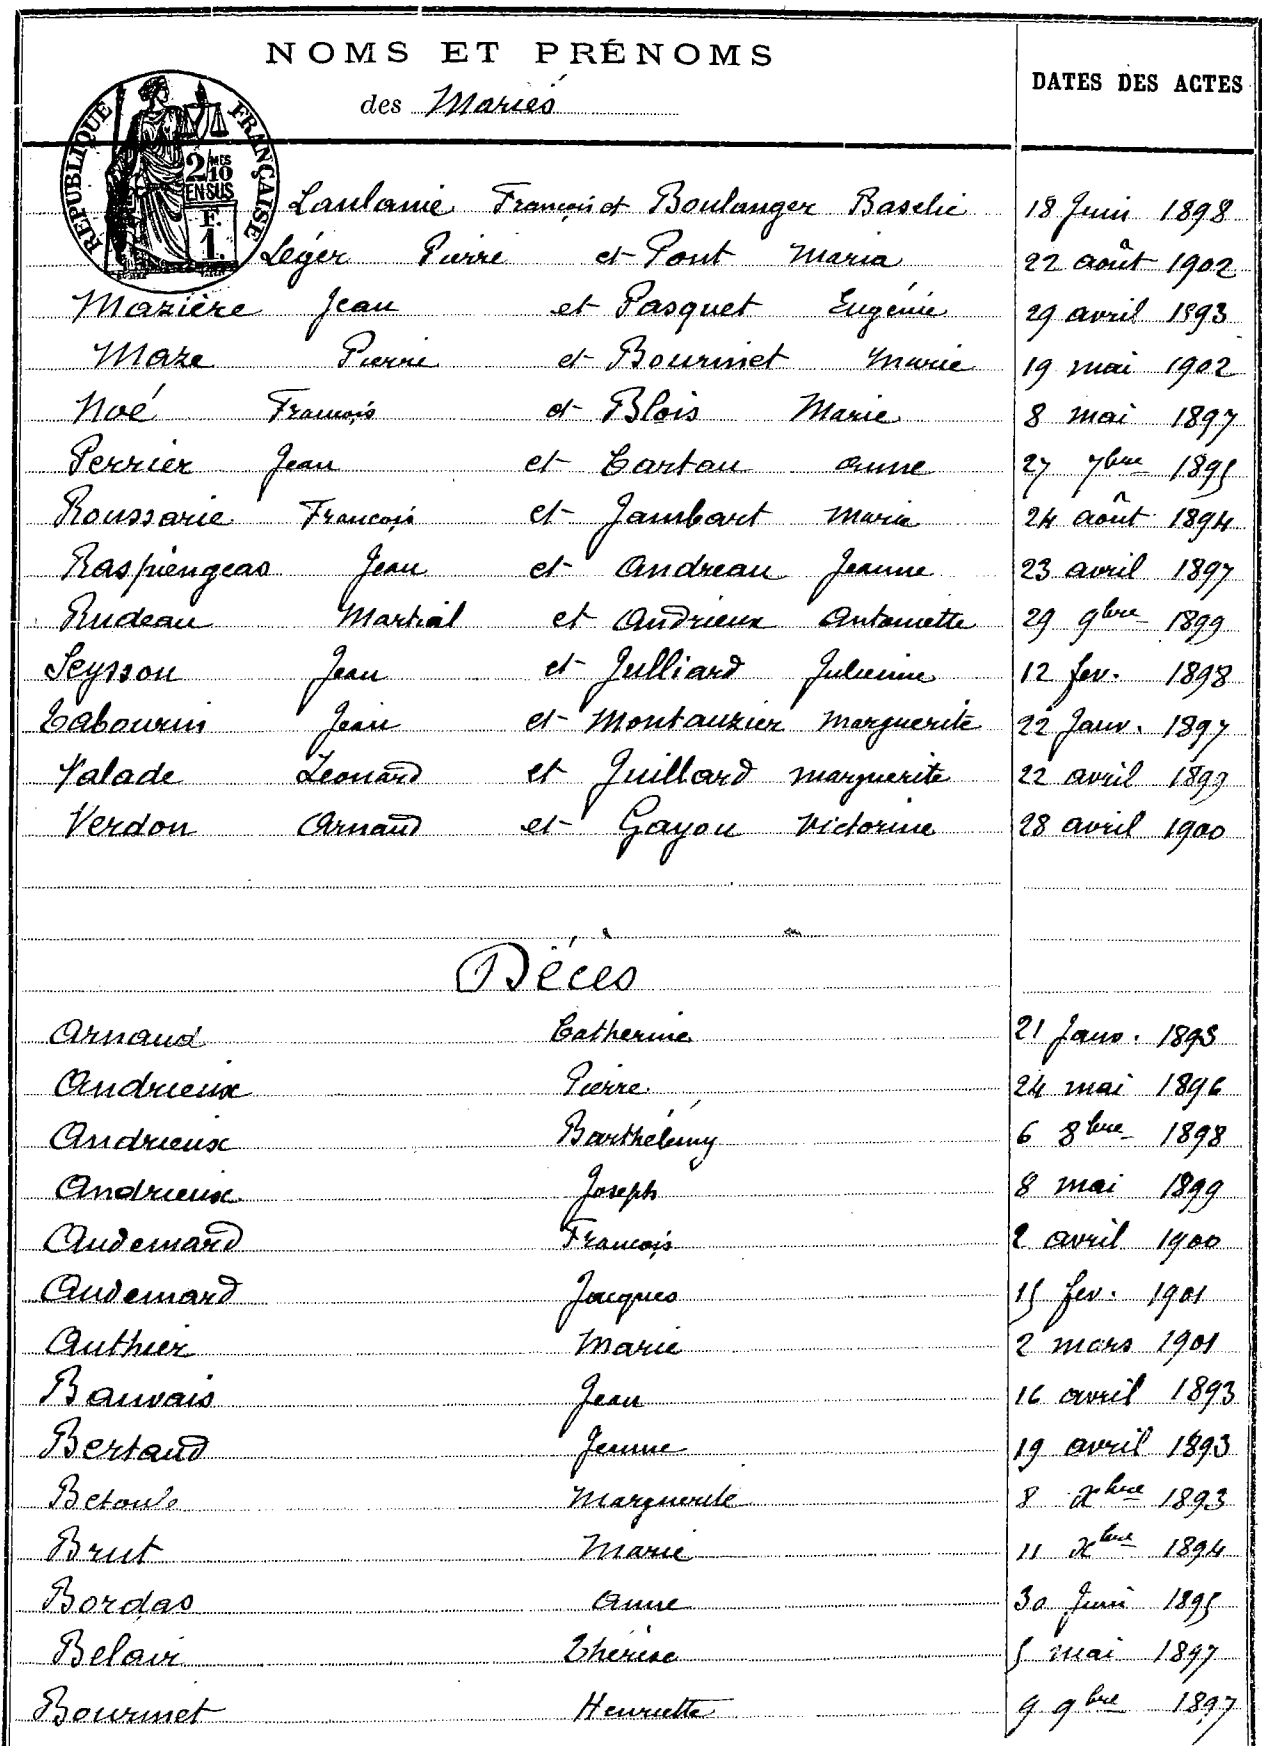 NOMS ET PRÉNOMS
des Mariés
DATES DES ACTES
RÉPUBLIQUE FRANÇAISE
2/10 MES
EN SUS
F.
1.
Laulanie François et Boulanger Baselie 18 Juin 1898
Léger Pierre et Pont Maria 22 août 1902
Mazière Jean et Pasquet Eugénie 29 avril 1893
Maze Pierre et Bourinet Marie 19 mai 1902
Noé François et Blois Marie 8 mai 1897
Perrier Jean et Cartau anne 27 7bre 1895
Roussarie François et Jambart Marie 24 août 1894
Raspiengeas Jean et Andreau Jeanne 23 avril 1897
Rudeau Martial et Andrieux Antoinette 29 9bre 1899
Seysson Jean et Julliard Julienne 12 fev. 1898
Tabourin Jean et Montauzier Marguerite 22 Janv. 1897
Valade Léonard et Juillard Marguerite 22 avril 1899
Verdon Arnaud et Gayou Victorine 28 avril 1900
Décès
Arnaud Catherine 21 Janv. 1893
Andrieux Pierre 24 mai 1896
Andrieux Barthélémy 6 8bre 1898
Andrieux Joseph 8 mai 1899
Audemard François 2 avril 1900
Audemard Jacques 15 fev. 1901
Authier Marie 2 mars 1901
Bauvais Jean 16 avril 1893
Bertaud Jeanne 19 avril 1893
Betoule Marguerite 8 xbre 1893
Brut Marie 11 xbre 1894
Bordas Anne 30 Juin 1895
Belair Thérèse 5 mai 1897
Bourinet Henriette 9 9bre 1897